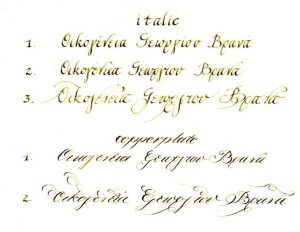 italic
1. Οικογένεια Γεωργίου Βρανά
2. Οικογένεια Γεωργίου Βρανά
3. Οικογένεια Γεωργίου Βρανά
copperplate
1. Οικογένεια Γεωργίου Βρανά
2. Οικογένεια Γεωργίου Βρανά